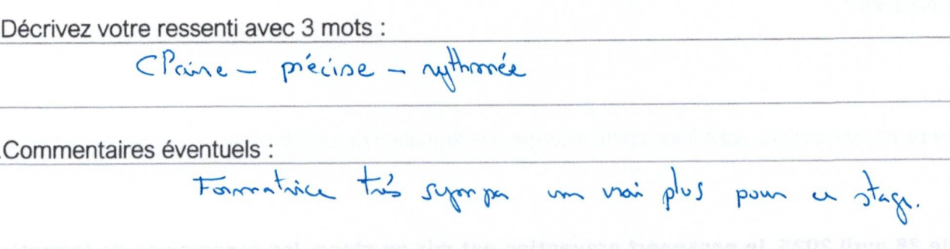 Décrivez votre ressenti avec 3 mots :
Claire - précise - rythmée
Commentaires éventuels :
Formatrice très sympa un vrai plus pour ce stage.